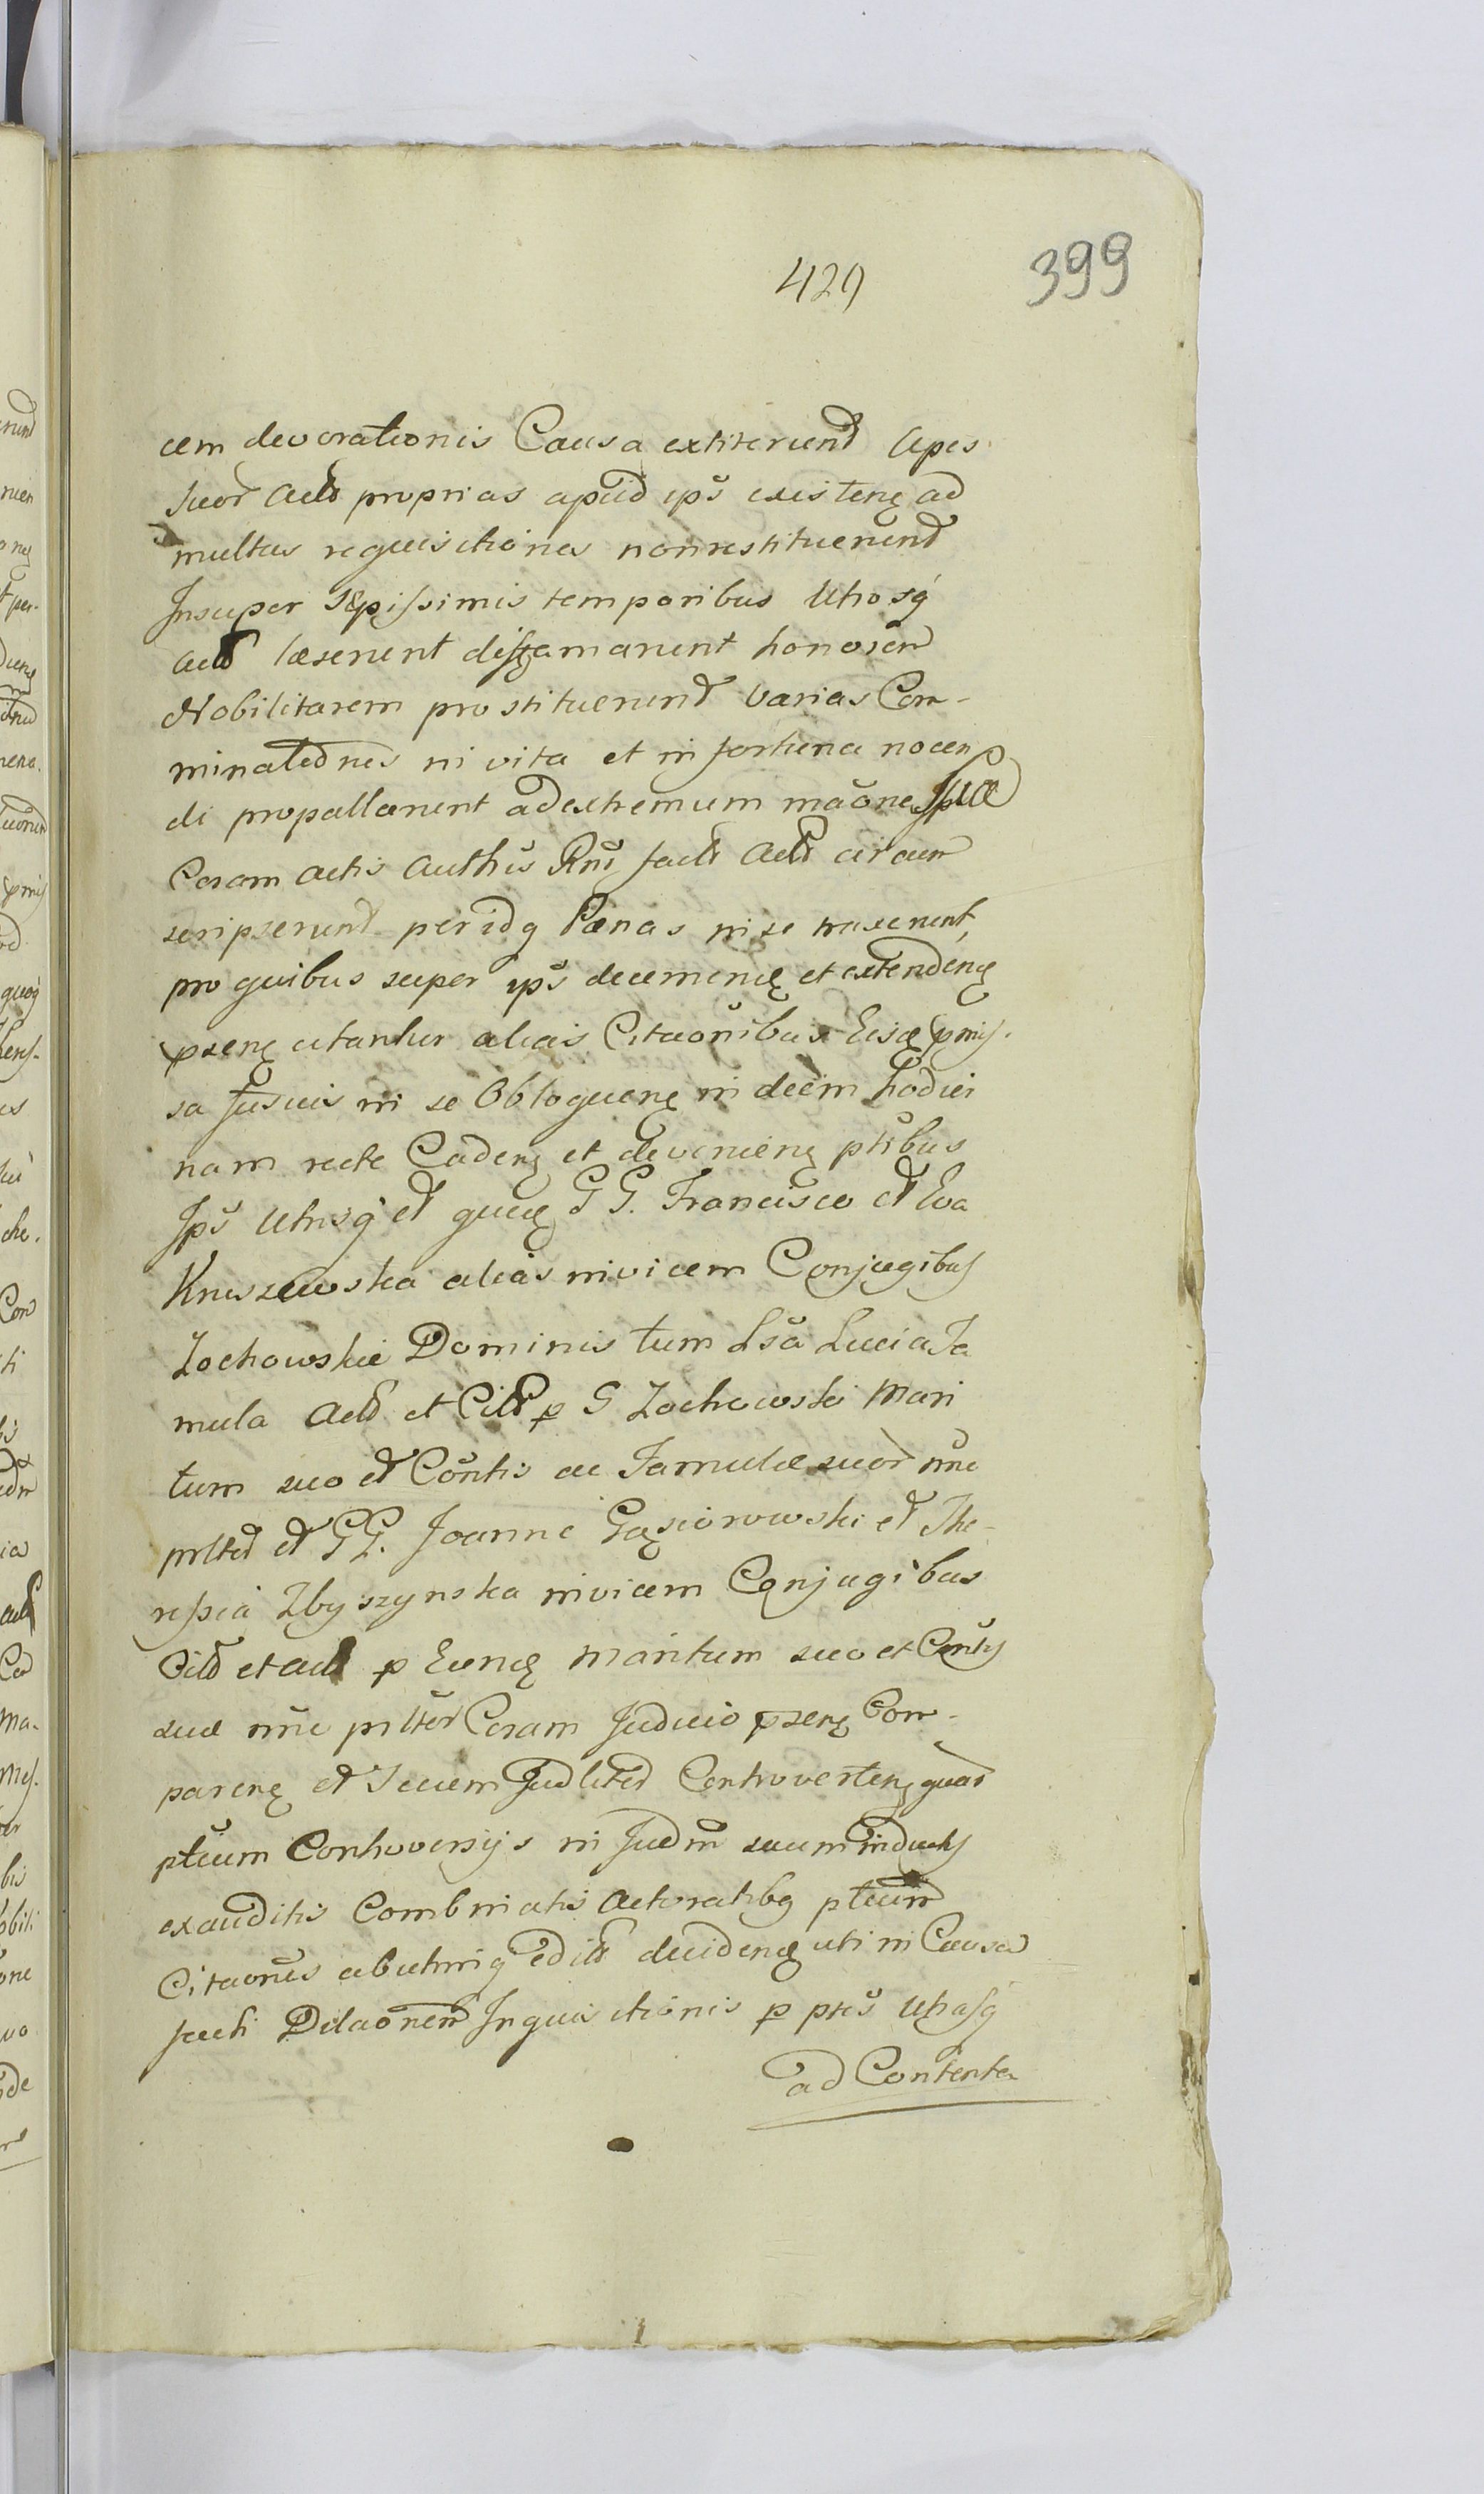 429
399
cem devorationis Causa extiterund Apes
suor Actō proprias apud ips existenę ad
multas requisitiones nonrestituerund
Insuper sępissimis temporibus Utrosq́
Actō læserent diffamarunt honorem
Nobilitarem prostituerund varias Com-
minationes in vita et in fortuna nocen
di propallarunt ad extremum maōne
Coram actis Authūs Rnū factō Actō circum
scripserund per idq Pænas in se traxerunt,
pro quibus super ips decernendę et extendendę
pzenę citantur alias Citaōnibus Eisdę pmis-
sa fusius in se Obloquenę in diem hodier
nam recte Cadenę et devenienę ptibus
Ips Utrisq́ et quidę GG. Francisco et Eva
Kruszewska alias invicem Conjugibus
Zochowskie Dominis tum Lsā Lucia Fa
mula Actō et Citō p G Zochowski Mari
tum suo et Cōntis ac Famulæ suor nūe
prlted et GG. Joanne Gąsiorowski et The-
ressia Zbyszynska invicem Conjugibus
Citō et Actō p Eundę Maritum suo et Cōntis
suæ nūe prlter Coram Judicio pzenę Com-
parenę et Secum Judlited Controvertenę quar
ptium Controversijs in Judm suum inductis
exauditis Combinatis Actoratibq ptium
Citaōnes ab utrinq editō decidendę uti in Causa
facti Dilaōnem Inquisitionis p ptes Utrasq́
ad Contenta